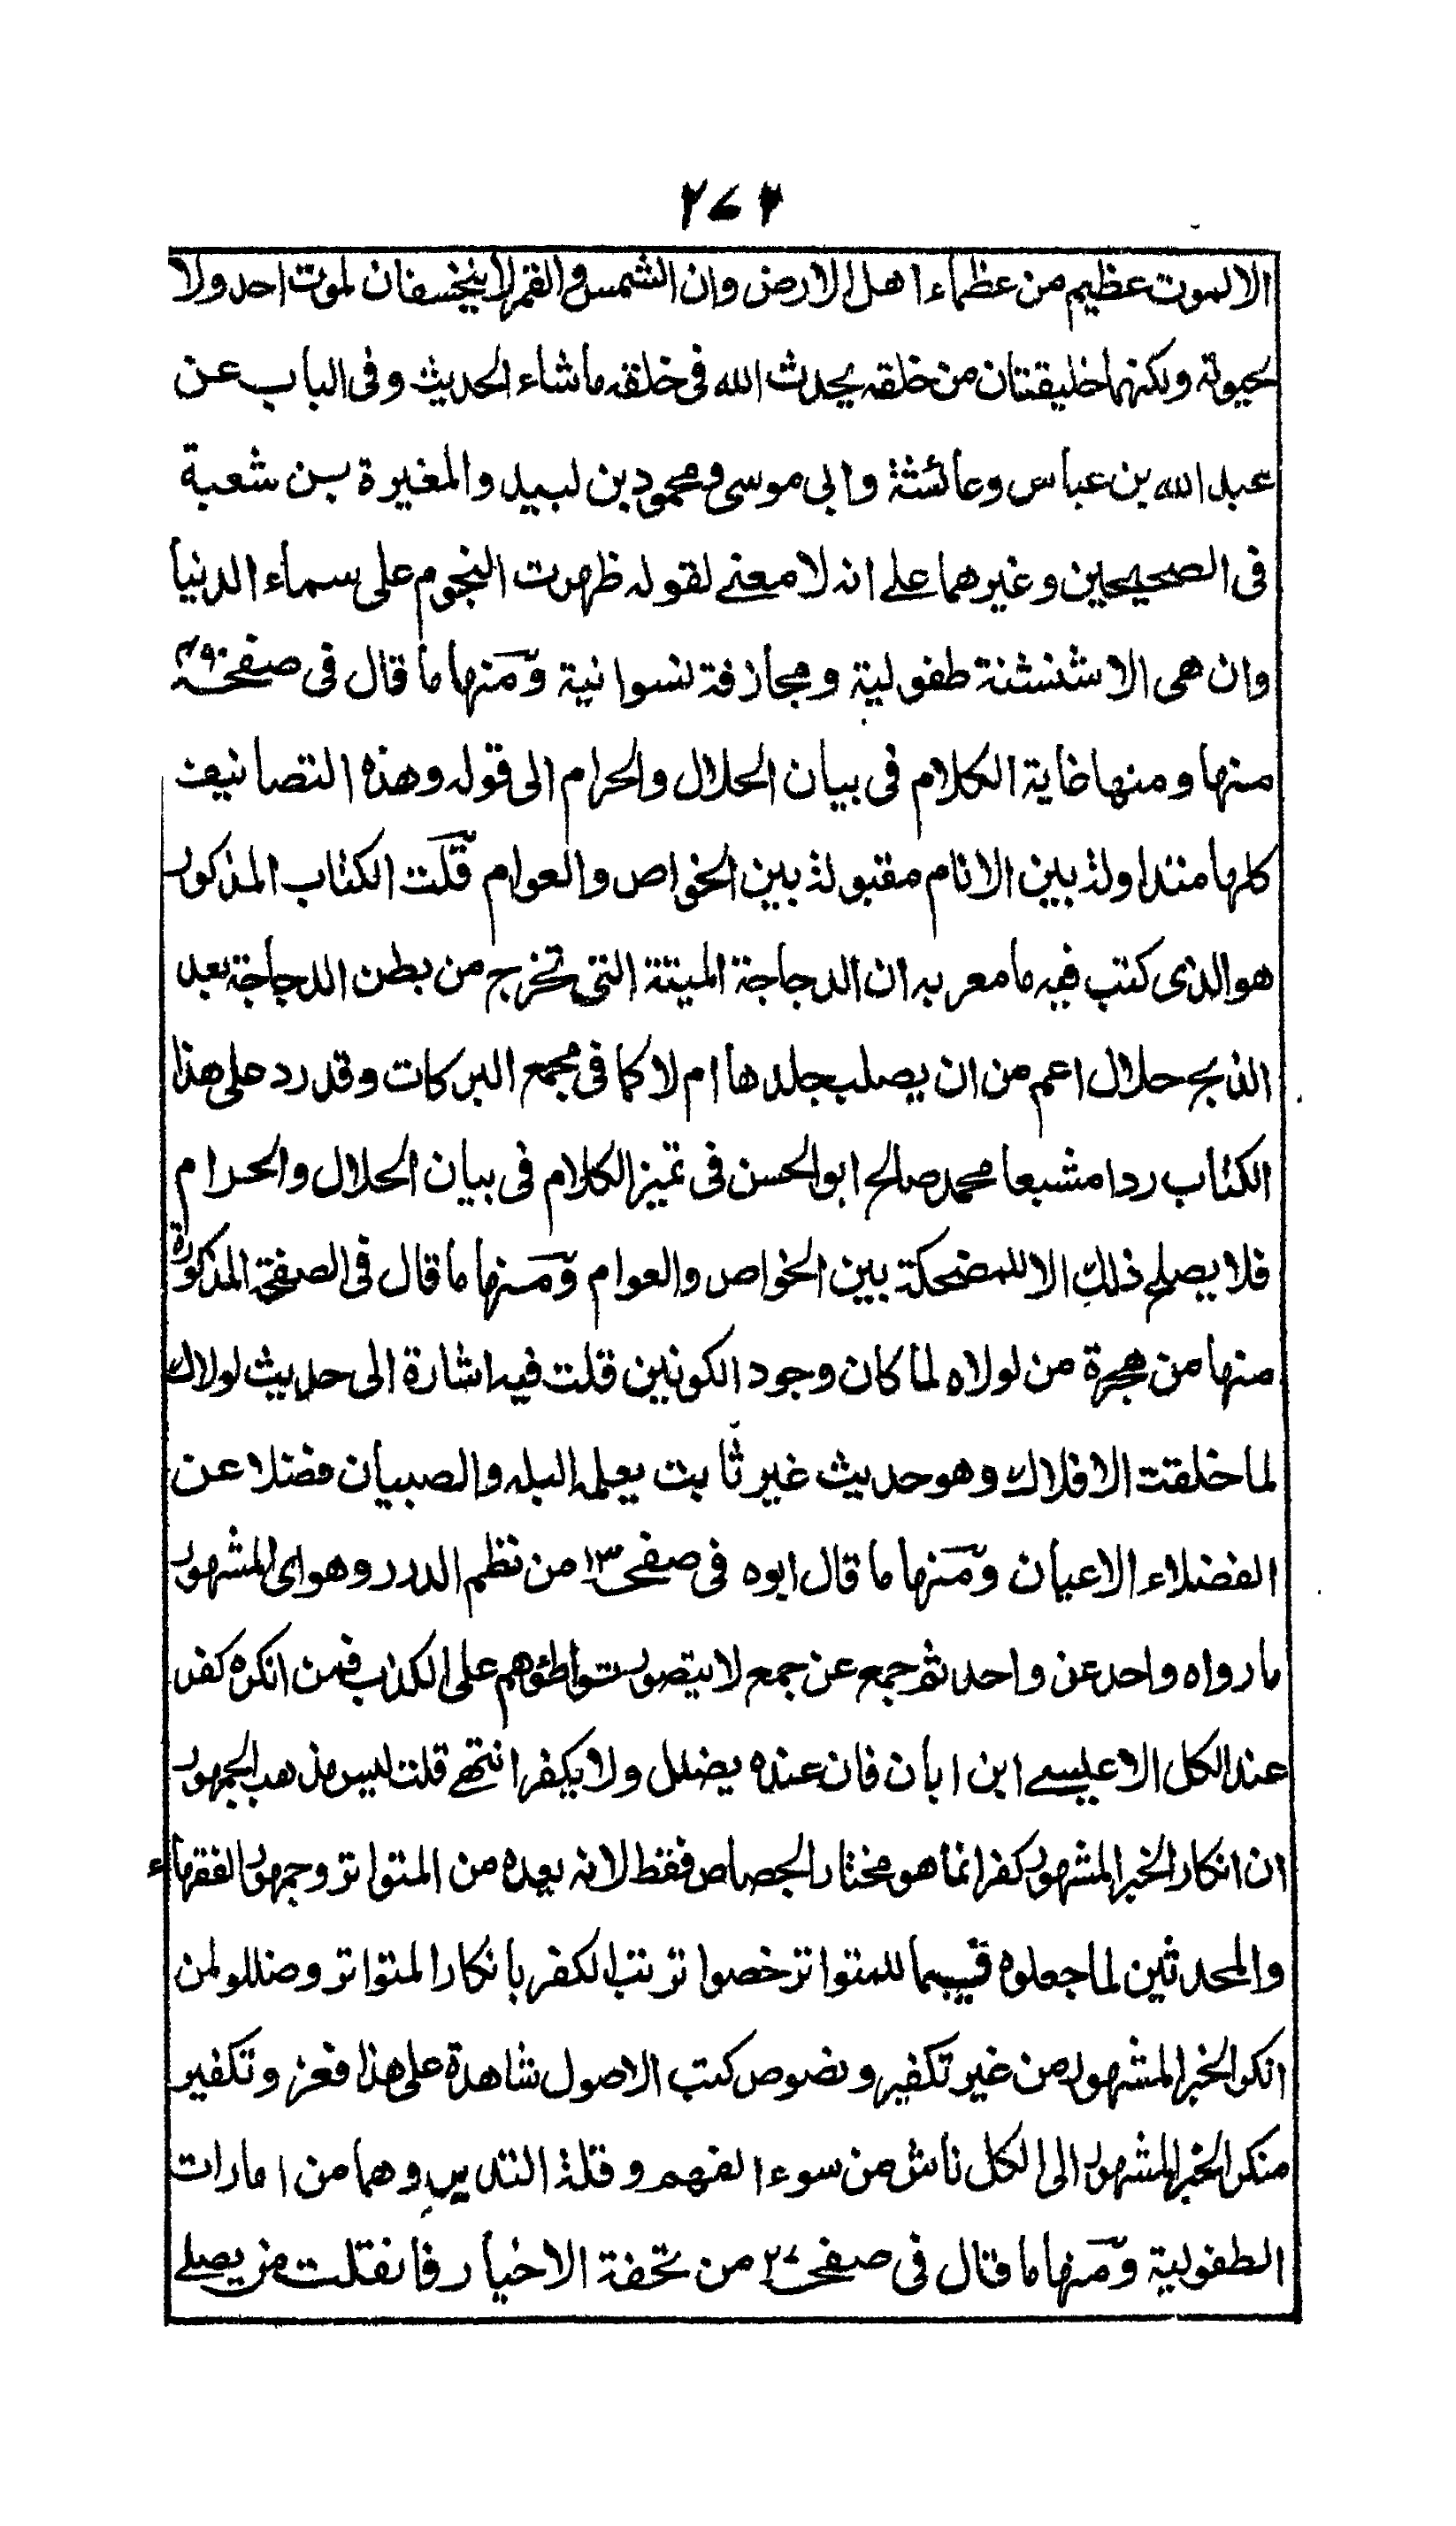 ۲۷۲
الا لموت عظيم من عظماء اهل الارض وان الشمس والقمر لا ينخسفان لموت احد ولا
لحيوته ولكنهما خليقتان من خلقه يحدث الله فى خلقه ما شاء الحديث وفى الباب عن
عبد الله بن عباس وعائشة وابى موسى ومحمود بن لبيد والمغيرة بن شعبة
فى الصحيحين وغيرهما على انه لا معنے لقوله ظهرت النجوم على سماء الدنيا
وان هى الا شنشنة طفولية ومجازفة نسوانية ومنها ما قال فى صفحة
منها ومنها غاية الكلام فى بيان الحلال والحرام الى قوله وهذه التصانيف
كلها متداولة بين الانام مقبولة بين الخواص والعوام قلت الكتاب المذكور
هو الذى كتب فيه ما معربه ان الدجاجة الميتة التى تخرج من بطن الدجاجة بعد
الذبح حلال اعم من ان يصلب جلدها ام لا كما فى مجمع البركات وقد رد على هذا
الكتاب ردا مشبعا محمد صالح ابو الحسن فى تميز الكلام فى بيان الحلال والحرام
فلا يصلح ذلك الا للمضحكة بين الخواص والعوام ومنها ما قال فى الصفحة المذكورة
منها من هجرة من لولاه لما كان وجود الكونين قلت فيه اشارة الى حديث لولاك
لما خلقت الافلاك وهو حديث غير ثابت يعلمه البله والصبيان فضلا عن
الفضلاء الاعيان ومنها ما قال ابوه فى صفحہ ۱۳ من نظم الدرر وهو اى المشهور
ما رواه واحد عن واحد ثم جمع عن جمع لا يتصور تواطؤهم على الكذب فمن انكره كفر
عند الكل الا عيسے ابن ابان فان عنده يضلل ولا يكفر انتهے قلت ليس مذهب الجمهور
ان انكار الخبر المشهور كفر انما هو مختار الجصاص فقط لانه يعده من المتواتر وجمهور الفقهاء
والمحدثين لما جعلوه قسيما للمتواتر خصوا ترتب الكفر بانكار المتواتر وضللوا من
انكر الخبر المشهور من غير تكفير ونصوص كتب الاصول شاهدة على هذا فعزو تكفير
منكر الخبر المشهور الى الكل ناش من سوء الفهم وقلة التدبر وهما من امارات
الطفولية ومنها ما قال فى صفحہ ۲۷ من تحفة الاخيار فان قلت من يصلے